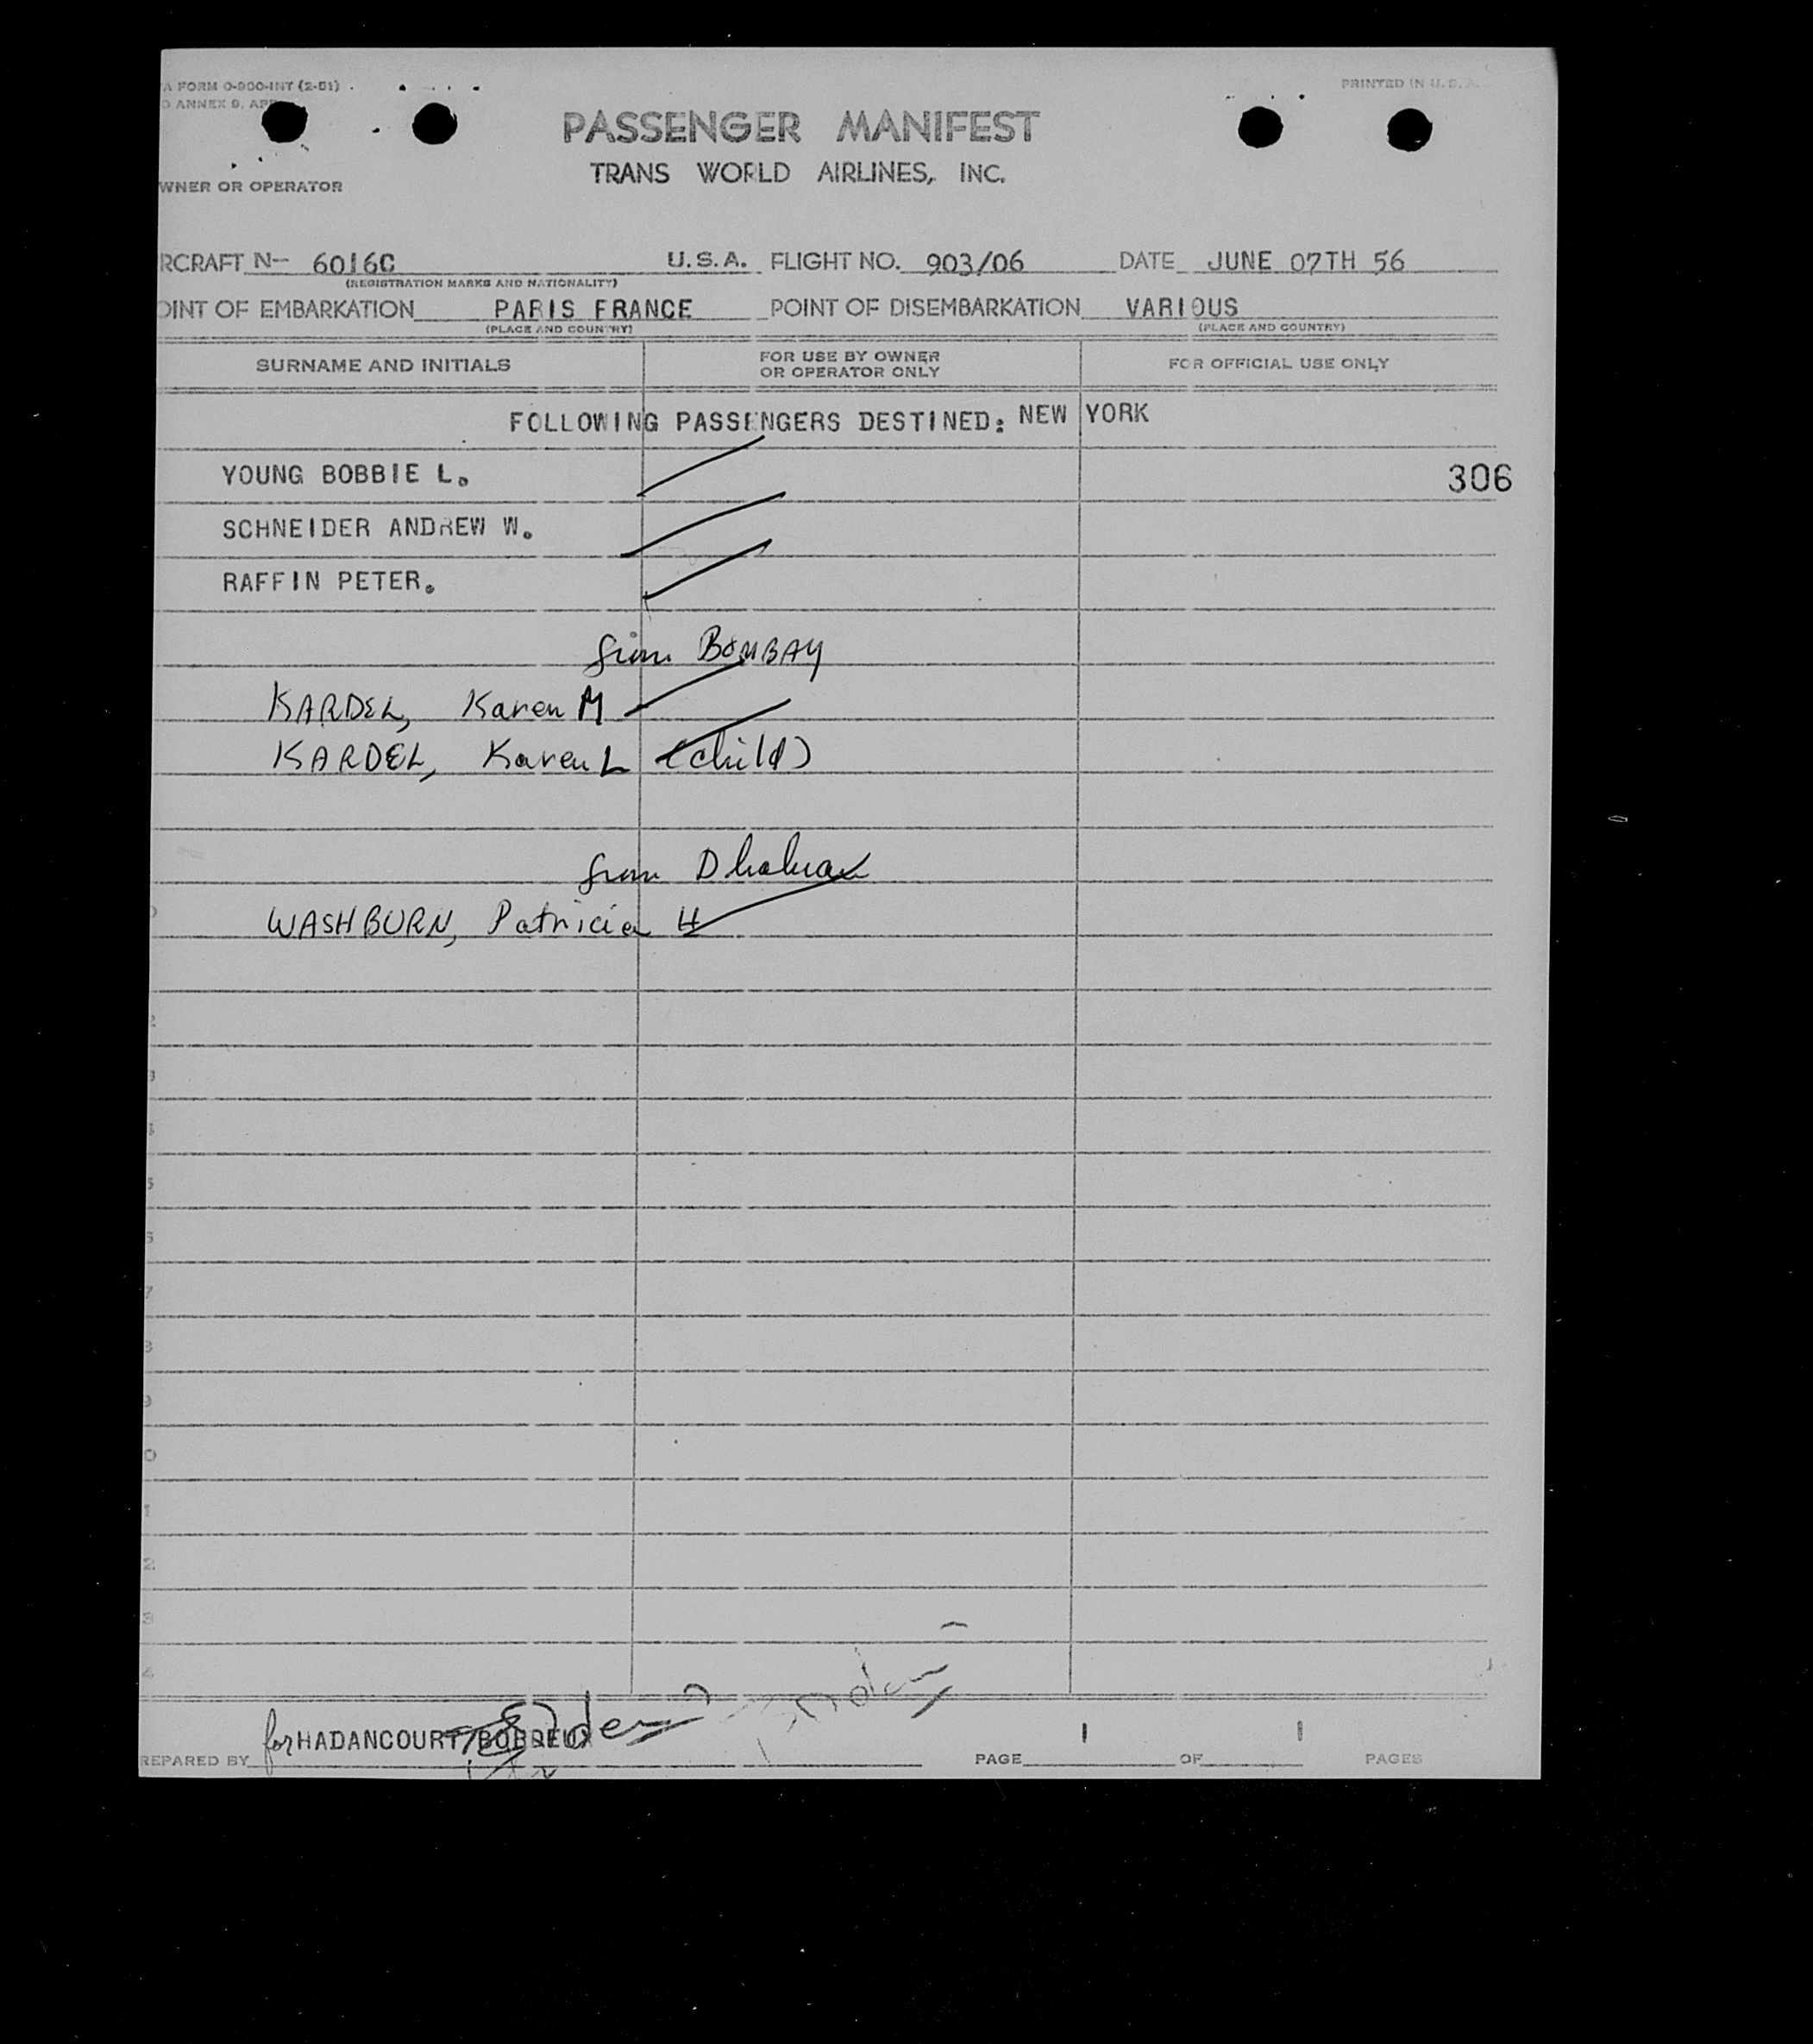 A FORM 0-900-INT (2-51)
PRINTED IN U.S.A.
O ANNEX 9, AP
PASSENGER MANIFEST
TRANS WORLD AIRLINES, INC.
WNER OR OPERATOR
RCRAFT N- 6016C U.S.A. FLIGHT NO. 903/06 DATE JUNE 07TH 56
(REGISTRATION MARKS AND NATIONALITY)
OINT OF EMBARKATION PARIS FRANCE POINT OF DISEMBARKATION VARIOUS
(PLACE AND COUNTRY) (PLACE AND COUNTRY)
SURNAME AND INITIALS FOR USE BY OWNER OR OPERATOR ONLY FOR OFFICIAL USE ONLY
FOLLOWING PASSENGERS DESTINED: NEW YORK
YOUNG BOBBIE L. 306
SCHNEIDER ANDREW W.
RAFFIN PETER.
from BOMBAY
KARDEL, Karen M
KARDEL, Karen L (child)
from Dhahran
WASHBURN, Patricia H
for HADANCOURT/
REPARED BY PAGE 1 OF 1 PAGES